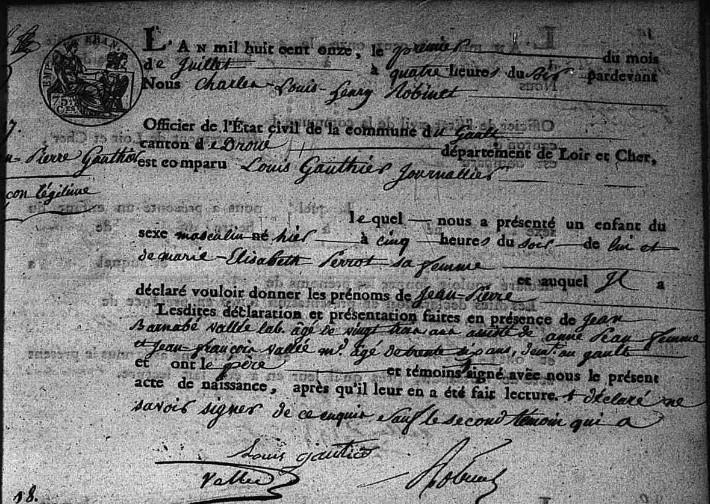 L'AN mil huit cent onze, le premier du mois
de Juillet à quatre heures du soir pardevant
Nous Charles-Louis-henry Robinet
Officier de l'État civil de la commune du Gault
canton de Droué département de Loir et Cher,
est comparu Louis Gauthier Journallier
Pierre Gauthier
légitime
lequel nous a présenté un enfant du
sexe masculin né hier à cinq heures du soir de lui et
de marie-Elisabeth Perrot sa femme
et auquel Il a
déclaré vouloir donner les prénoms de Jean-Pierre
Lesdites déclaration et présentation faites en présence de Jean
Barnabé Vallée lab. âgé de vingt ans femme
et Jean-françois Vallée md. âgé de trente ans, au gault
et ont le père et témoins signé avec nous le présent
acte de naissance, après qu'il leur en a été fait lecture. déclaré ne
savoir signer de ce enquis sauf le second témoin qui a
Louis gautier
Vallée Robinet
18.